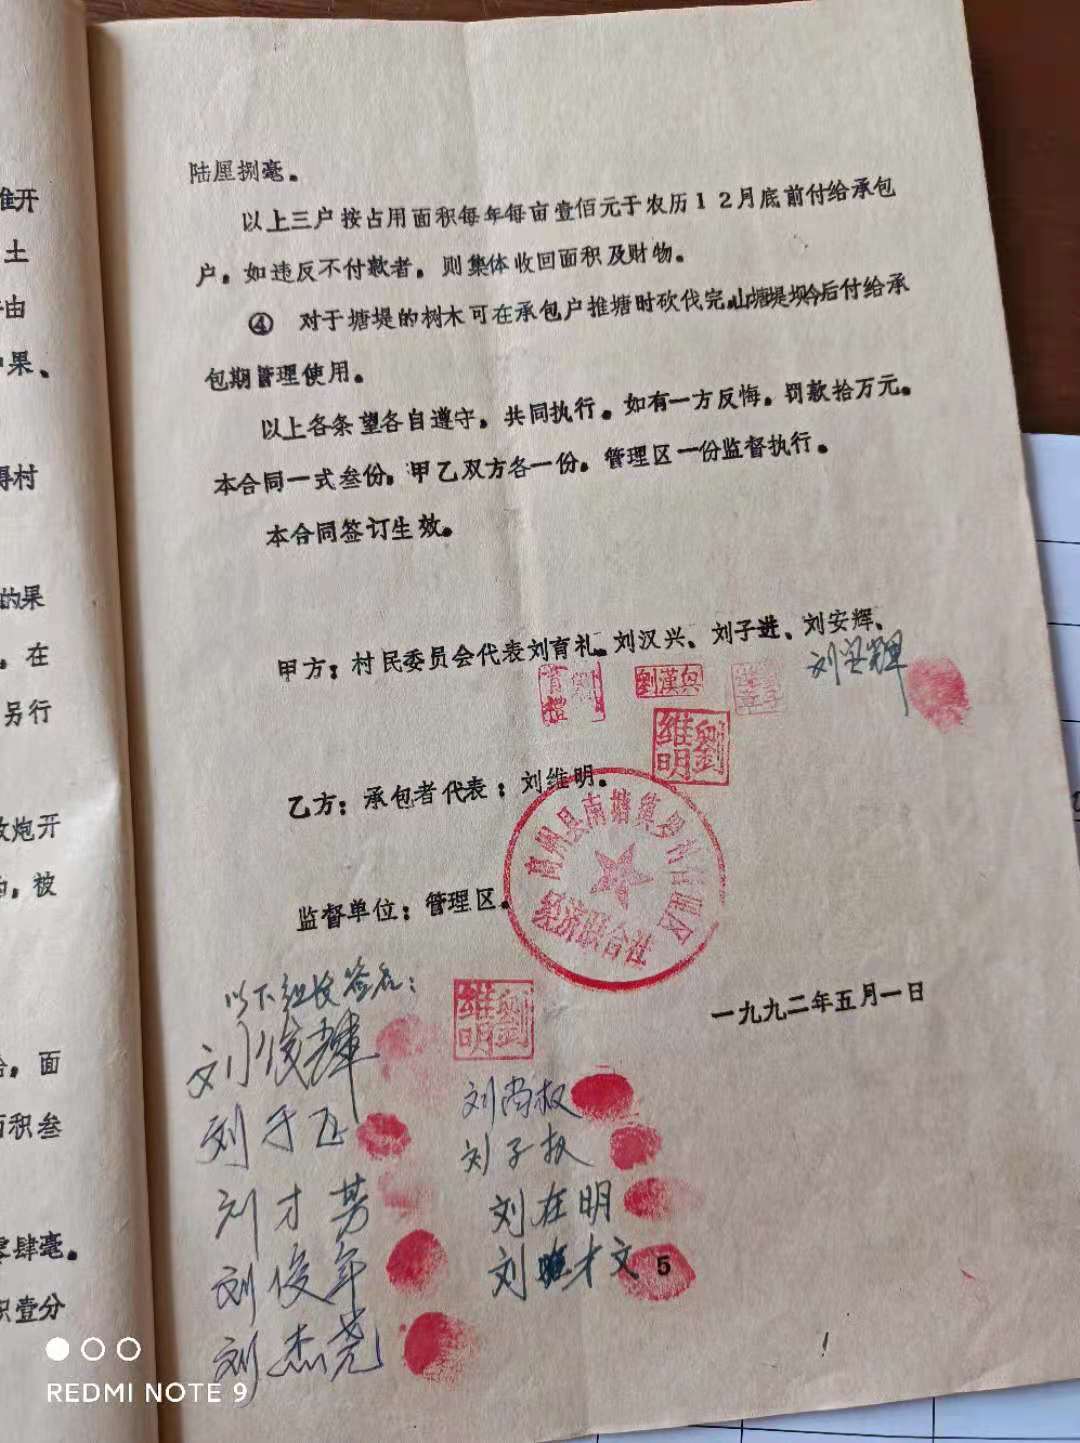 陆厘捌毫。
以上三户按占用面积每年每亩壹佰元于农历12月底前付给承包
户，如违反不付款者，则集体收回面积及财物。
④ 对于塘堤的树木可在承包户推塘时砍伐完，山塘堤坝今后付给承
包期管理使用。
以上各条望各自遵守，共同执行。如有一方反悔，罚款拾万元。
本合同一式叁份，甲乙双方各一份，管理区一份监督执行。
本合同签订生效。
甲方：村民委员会代表刘育礼、刘汉兴、刘子进、刘安辉、
刘安辉
劉育禮
劉漢興
劉维明
乙方：承包者代表：刘维明。
县南塘镇
管理区
经济联合社
监督单位：管理区。
一九九二年五月一日
以下组长签名：
劉维明
刘俊輝
刘子
刘才芳
刘俊年
刘杰尧
刘尚权
刘子权
刘在明
刘才文
5
准开
土
由
果、
得村
的果
，在
另行
放炮开
，被
，面
积叁
零肆毫。
积壹分
REDMI NOTE 9